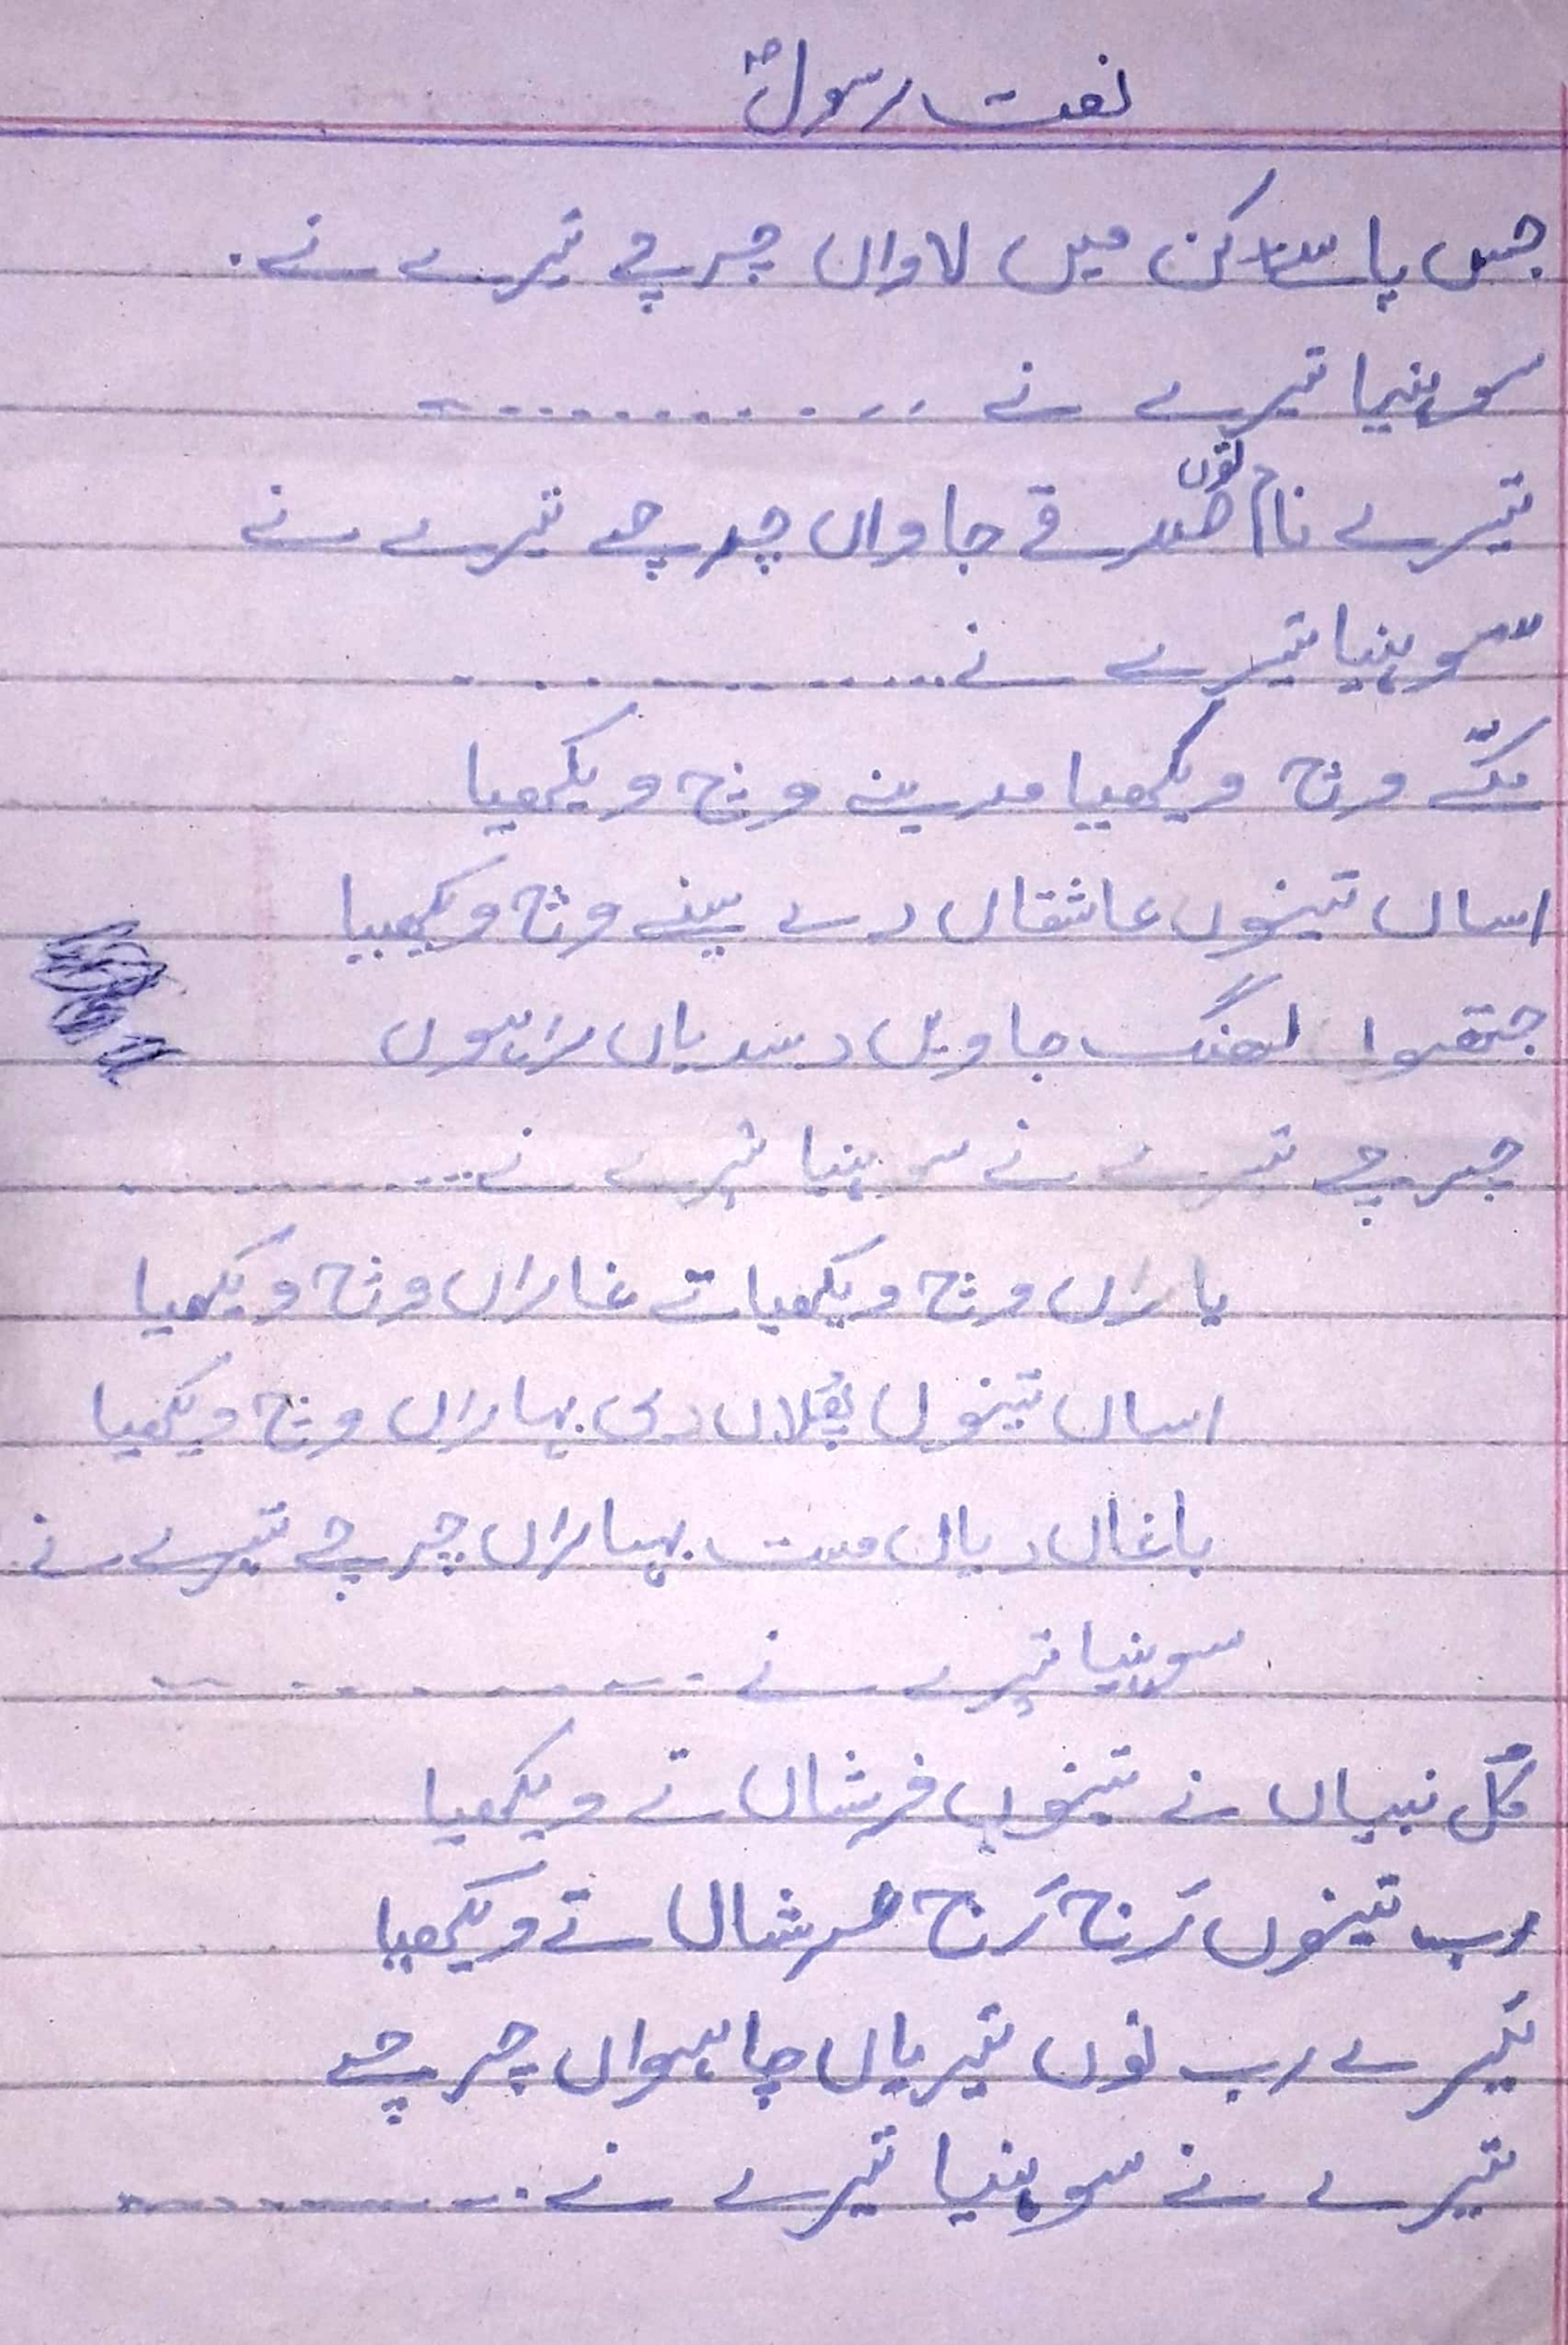 نعت رسولؐ
جس پاسے کن میں لاواں چرچے تیرے نے.
سوہنیا تیرے نے ...........
تیرے نام توں صدقے جاواں چرچے تیرے نے
سوہنیا تیرے نے ...........
مکّے وچ ویکھیا مدینے وچ ویکھیا
اساں تینوں عاشقاں دے سینے وچ ویکھیا
جتھوا لھنگ جاویں دسدیاں راہوں
چرچے تیرے نے سوہنیا تیرے نے ...........
یاراں وچ ویکھیا تے غاراں وچ ویکھیا
اساں تینوں پھُلاں دی بہاراں وچ ویکھیا
باغاں دیاں مست بہاراں چرچے تیرے نے
سوہنیا تیرے نے ...........
کُل نبیاں نے تینوں فرشاں تے ویکھیا
رب تینوں رَج رَج عرشاں تے ویکھیا
تیرے رب نوں تیریاں چاہواں چرچے
تیرے نے سوہنیا تیرے نے ...........